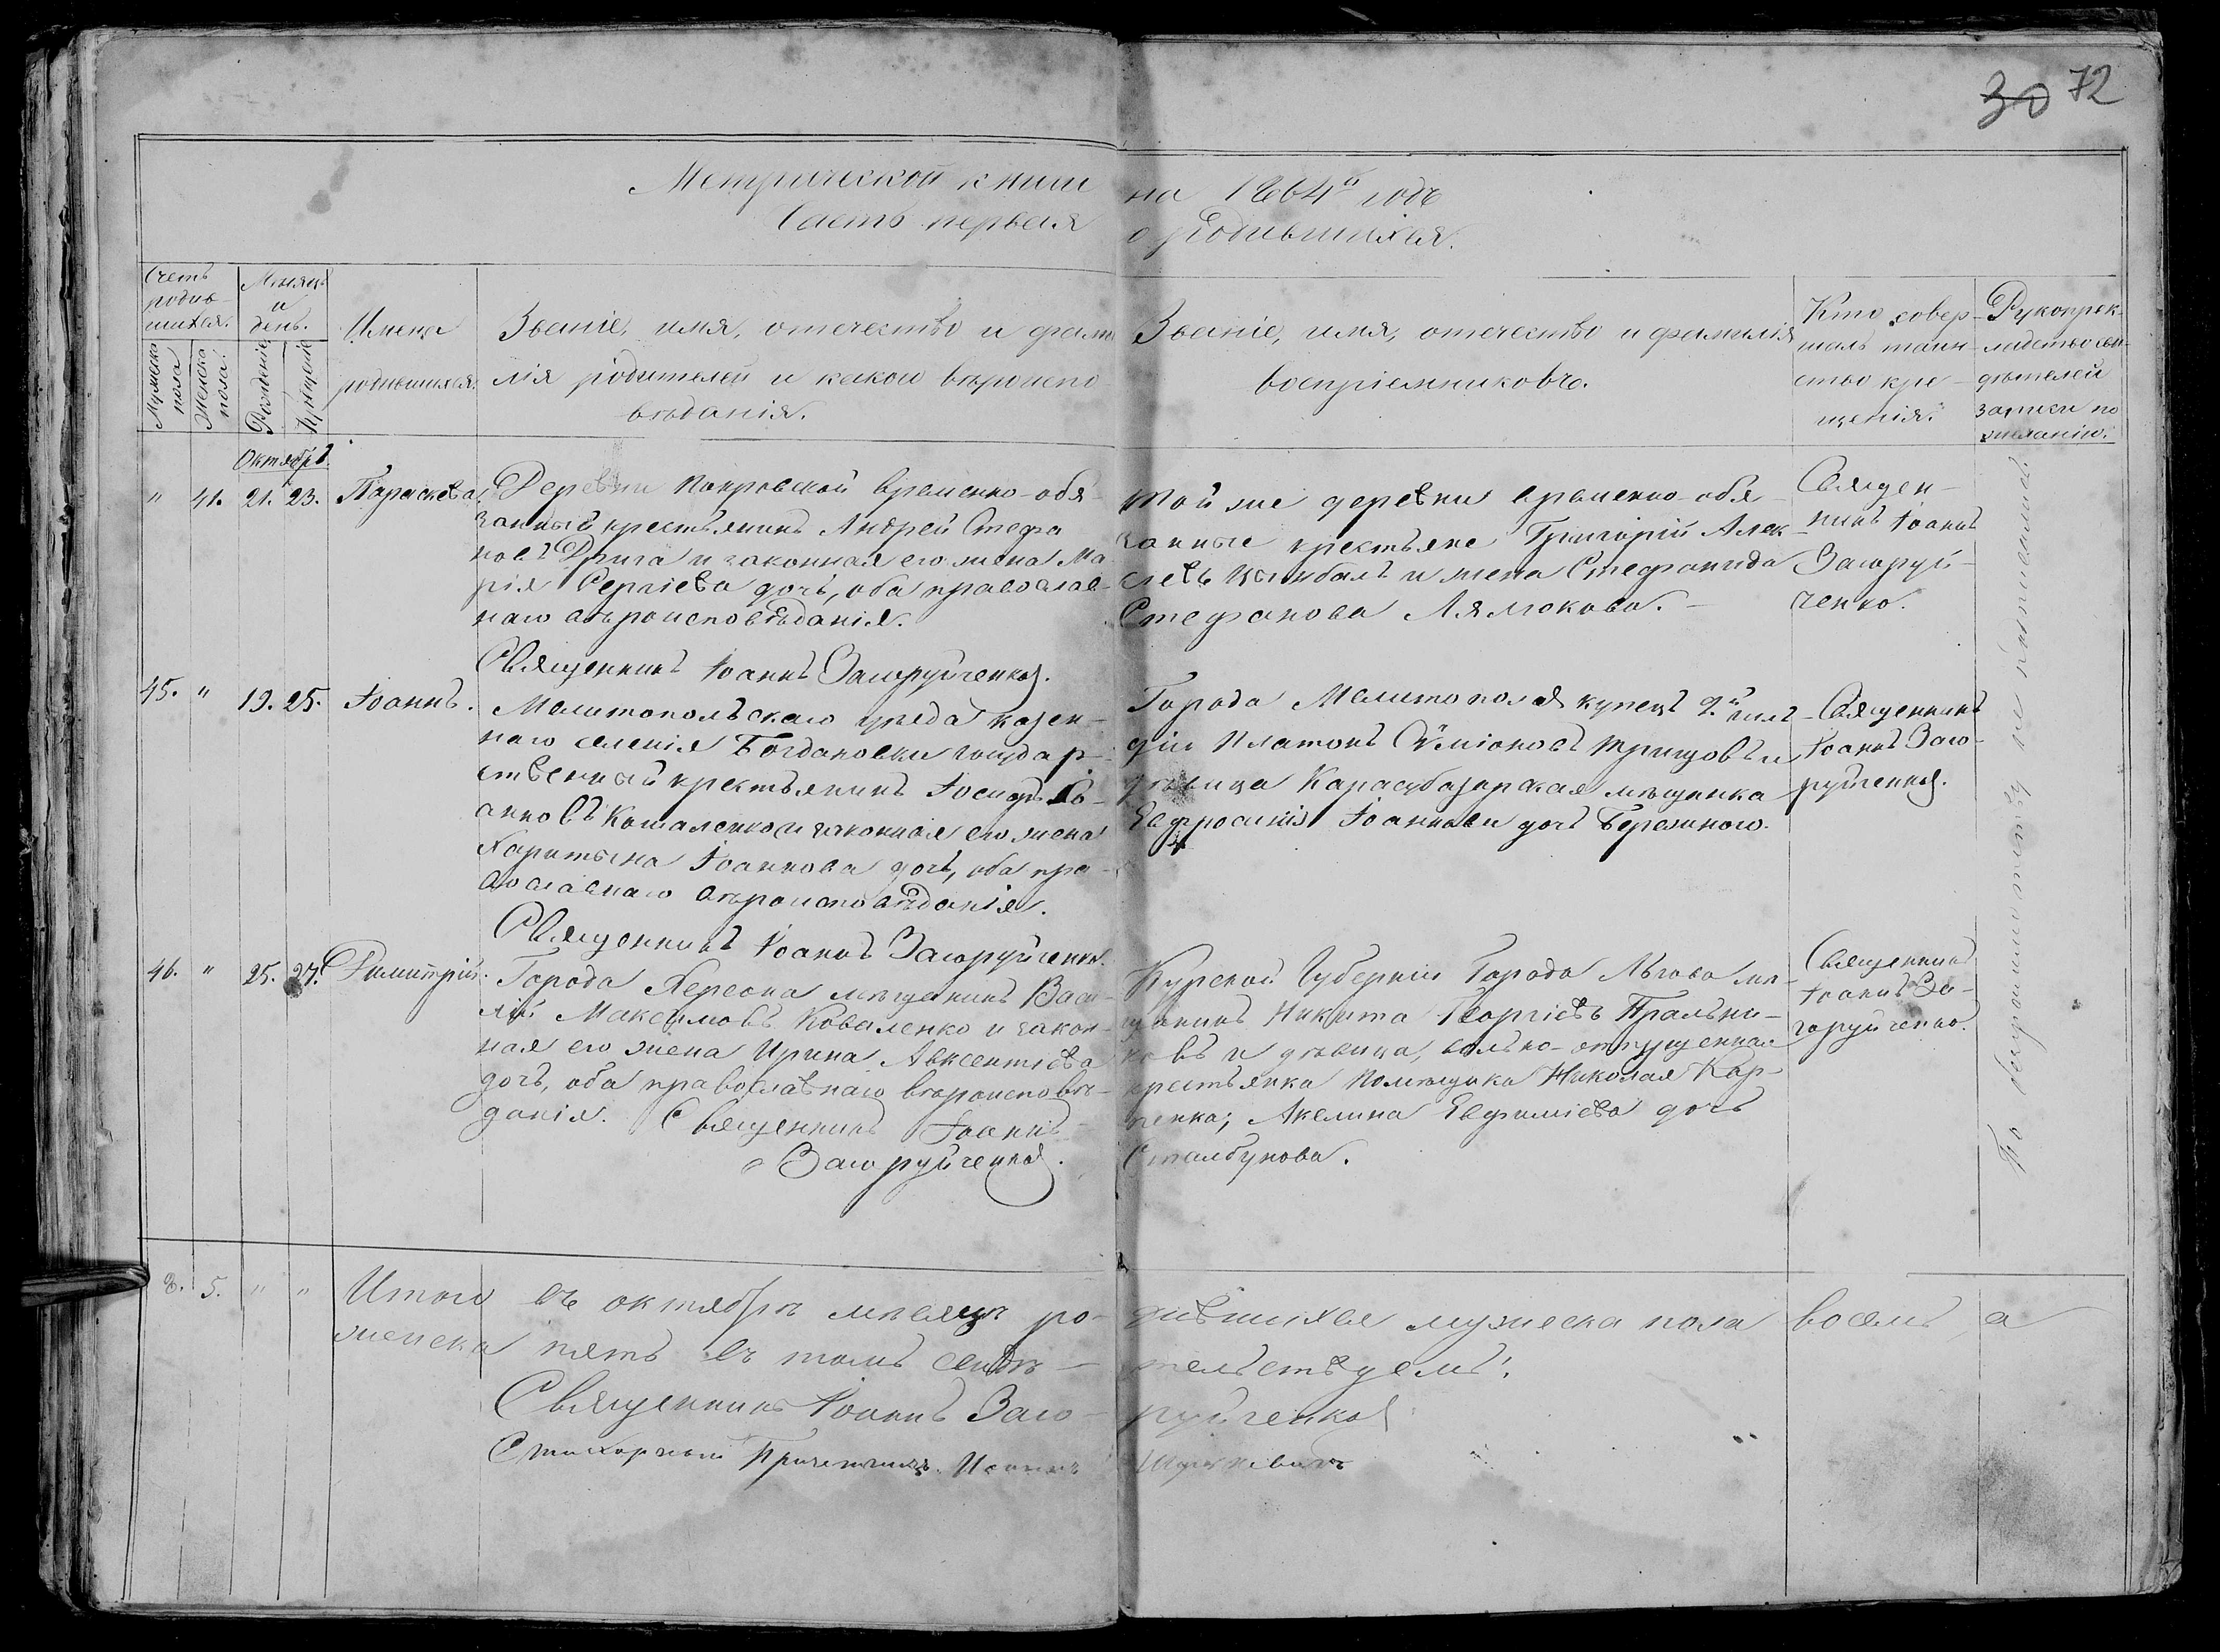 30 72
Метрической книги на 1864й годъ
Часть первая о родившихся.
Счетъ родив-
шихся.
Мужеска пола
Женска пола.
Месяцъ
и
день.
Рожденіе
Крещеніе
Имена
родившихся.
Званіе, имя, отечество и фами
лія родителей и какого вѣроиспо
вѣданія.
Званіе, имя, отечество и фамилія
воспріемниковъ.
Кто совер-
шалъ таин-
ство кре-
щенія.
Рукоприк-
ладство сви-
дѣтелей
записи по
желанію.
Октябрь.
" 41. 21. 23. Параскева
Деревни Покровской временно-обя-
занный крестьянинъ Андрей Стефа
новъ Дрига и законная его жена Ма
рія Сергіева дочь, оба православ-
наго вѣроисповѣданія.
Священникъ Іоаннъ Загоруйченко.
той же деревни временно-обя-
занные крестьяне Григорій Алек-
сѣевъ Цымбалъ и жена Стефанида
Стефанова Лямокова.
Священ-
никъ Іоаннъ
Загоруй-
ченко.
45. " 19. 25. Іоаннъ.
Мелитопольскаго уезда казен-
наго селенія Богдановки государ-
ственный крестьянинъ Іосифъ Іо-
анновъ Коваленко и законная его жена
Харитына Іоаннова дочь, оба пра-
вославнаго вѣроисповѣданія.
Священникъ Іоаннъ Загоруйченко.
Города Мелитополя купецъ 2й гиль-
діи Платонъ Сѵміоновъ и
дѣвица Карасубазарская мѣщанка
Евфросинія Іоаннова дочь Березнаго.
Священникъ
Іоаннъ Заго-
руйченко.
46. " 25. 27. Димитрій.
Города Херсона мѣщанинъ Васи-
лій Максимовъ Коваленко и закон-
ная его жена Ирина Авксентіева
дочь, оба православнаго вѣроисповѣ-
данія. Священникъ Іоаннъ
Загоруйченко.
Курской Губерніи Города Льгова мѣ-
щанинъ Никита Георгіевъ Пральни-
ковъ и дѣвица, вольно-отпущенная
крестьянка помѣщика Николая Кар-
пенка; Акелина Евфиміева дочь
Сталбунова.
Священникъ
Іоаннъ За-
горуйченко.
По неграмотству не
8. 5. " " Итого въ октябрѣ мѣсяцѣ ро-дившихся мужеска пола восемь, а
женска пять въ томъ свидѣ-тельствуемъ:
Священникъ Іоаннъ Заго-руйченко
Стихарный Причетникъ